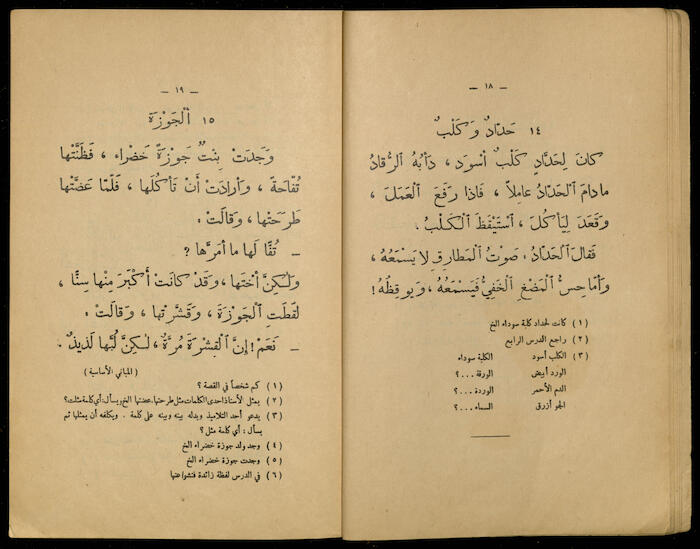 — ١٨ —
١٤ حَدّادٌ وَ كَلْبٌ
كانَ لِحَدّادٍ كَلْبٌ أَسْوَد ، دَأْبُهُ الرُّقادُ
مادامَ الْحَدّادُ عامِلاً ، فَاذا رَفَعَ الْعَمَلَ ،
وَقَعَدَ لِيَأْ كُلَ ، اَسْتَيْقَظَ الْـكَلْبُ .
فَقالَ الْحَدّادُ : صَوْتُ الْمَطارِقِ لا يَسْمَعُهُ ،
وَأَمّا حِسُّ الْمَضْغِ الْخَفِيُّ فَيَسْمَعُهُ ، وَيو قِظُهُ !
(١) كانت لحداد كلبة سوداء الخ
(٢) راجع الدرس الرابع
(٣) الكلب أسود الكلبة سوداء
الورد أبيض الورقة ...؟
الدم الأحمر الوردة ...؟
الجو أزرق السماء ...؟
— ١٩ —
١٥ اَلْجَوْزَة
وَجَدَتْ بِنْتٌ جَوْزَةً خَضْراء ، فَظَنَّتْها
تُفّاحَةً ، وَأَرادَتْ أَنْ تَأْ كُلَها ، فَلَمّا عَضَّتْها
طَرَحَتْها ، وَقالَتْ :
— تُفًّا لَها ما أَمَرَّها ?
وَلـٰكِنَّ أُخْتَها ، وَقَدْ كانَتْ أَكْبَرَ مِنْها سِنًّا ،
لَقَطَتِ الْجَوْزَةَ ، وَقَشَّرَتْها ، وَقالَتْ :
— نَعَمْ ! إِنَّ الْقِشْرَةَ مُرَّةٌ ، لـٰكِنَّ لُبَّها لَذيذٌ .
( المباني الأساسية )
(١) كم شخصاً في القصة ؟
(٢) يمثل الأستاذ احدى الكلمات مثل طرحتها، عضتها الخ ويسأل : أي كلمة مثلت؟
(٣) يدعو أحد التلاميذ ويدله بينه وبينه على كلمة . ويكلفه أن يمثلها ثم
يسأل : أي كلمة مثل ؟
(٤) وجد ولد جوزة خضراء الخ
(٥) وجدت جوزة خضراء الخ
(٦) في الدرس لفظة زائدة فتشوا عنها